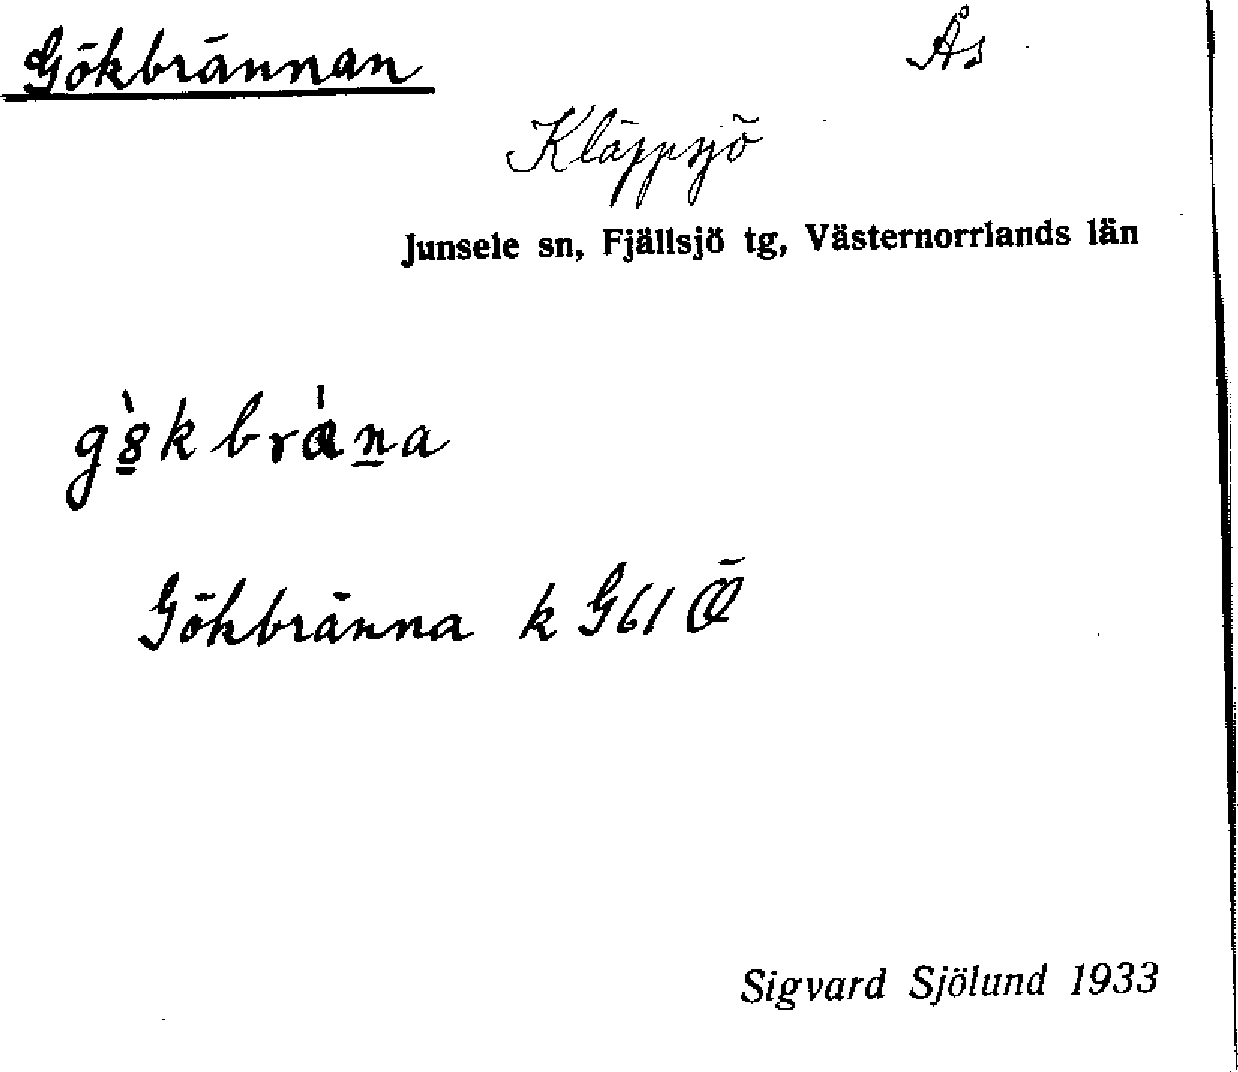 Gökbrännan
Ås
Kläppsjö
Junsele sn, Fjällsjö tg, Västernorrlands län
Gökbränna k G61 Ö
Sigvard Sjölund 1933